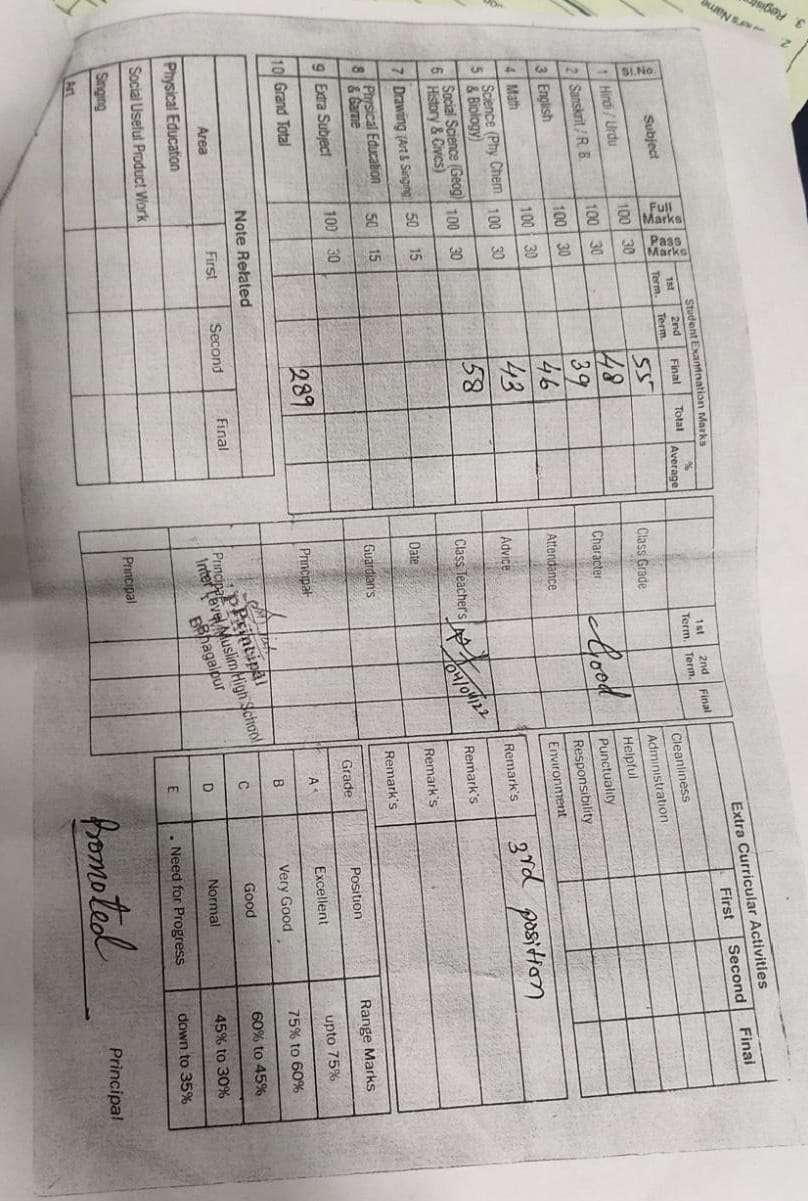 3. Registra
2
Sl.No. Subject Full Marks Pass Marks Student Examination Marks
1st Term. 2nd Term. Final Total % Average
1 Hindi / Urdu 100 30 55
2 Sanskrit / R. B. 100 30 48
3 English 100 30 39
4 Math 100 30 46
5 Science (Phy Chem & Biology) 100 30 43
6 Social Science (Geog) History & Civics) 100 30 58
7 Drawing (Art & Singing 50 15
8 Physical Education & Game 50 15
9 Extra Subject 100 30
10 Grand Total 289
Note Related
Area First Second Final
Physical Education
Social Useful Product Work
Singing
Art
1st Term. 2nd Term. Final
Class Grade
Character Good
Attendance
Advice
Class Teacher's
Date
Guardian's
Principal
Principal
Muslim High School
Bhagalpur
Principal
Extra Curricular Activities
First Second Final
Cleanliness
Administration
Helpful
Punctuality
Responsibility
Environment
Remark's 3rd position
Remark's
Remark's
Remark's
Grade Position Range Marks
A Excellent upto 75%
B Very Good 75% to 60%
C Good 60% to 45%
D Normal 45% to 30%
E Need for Progress down to 35%
Promoted
Principal